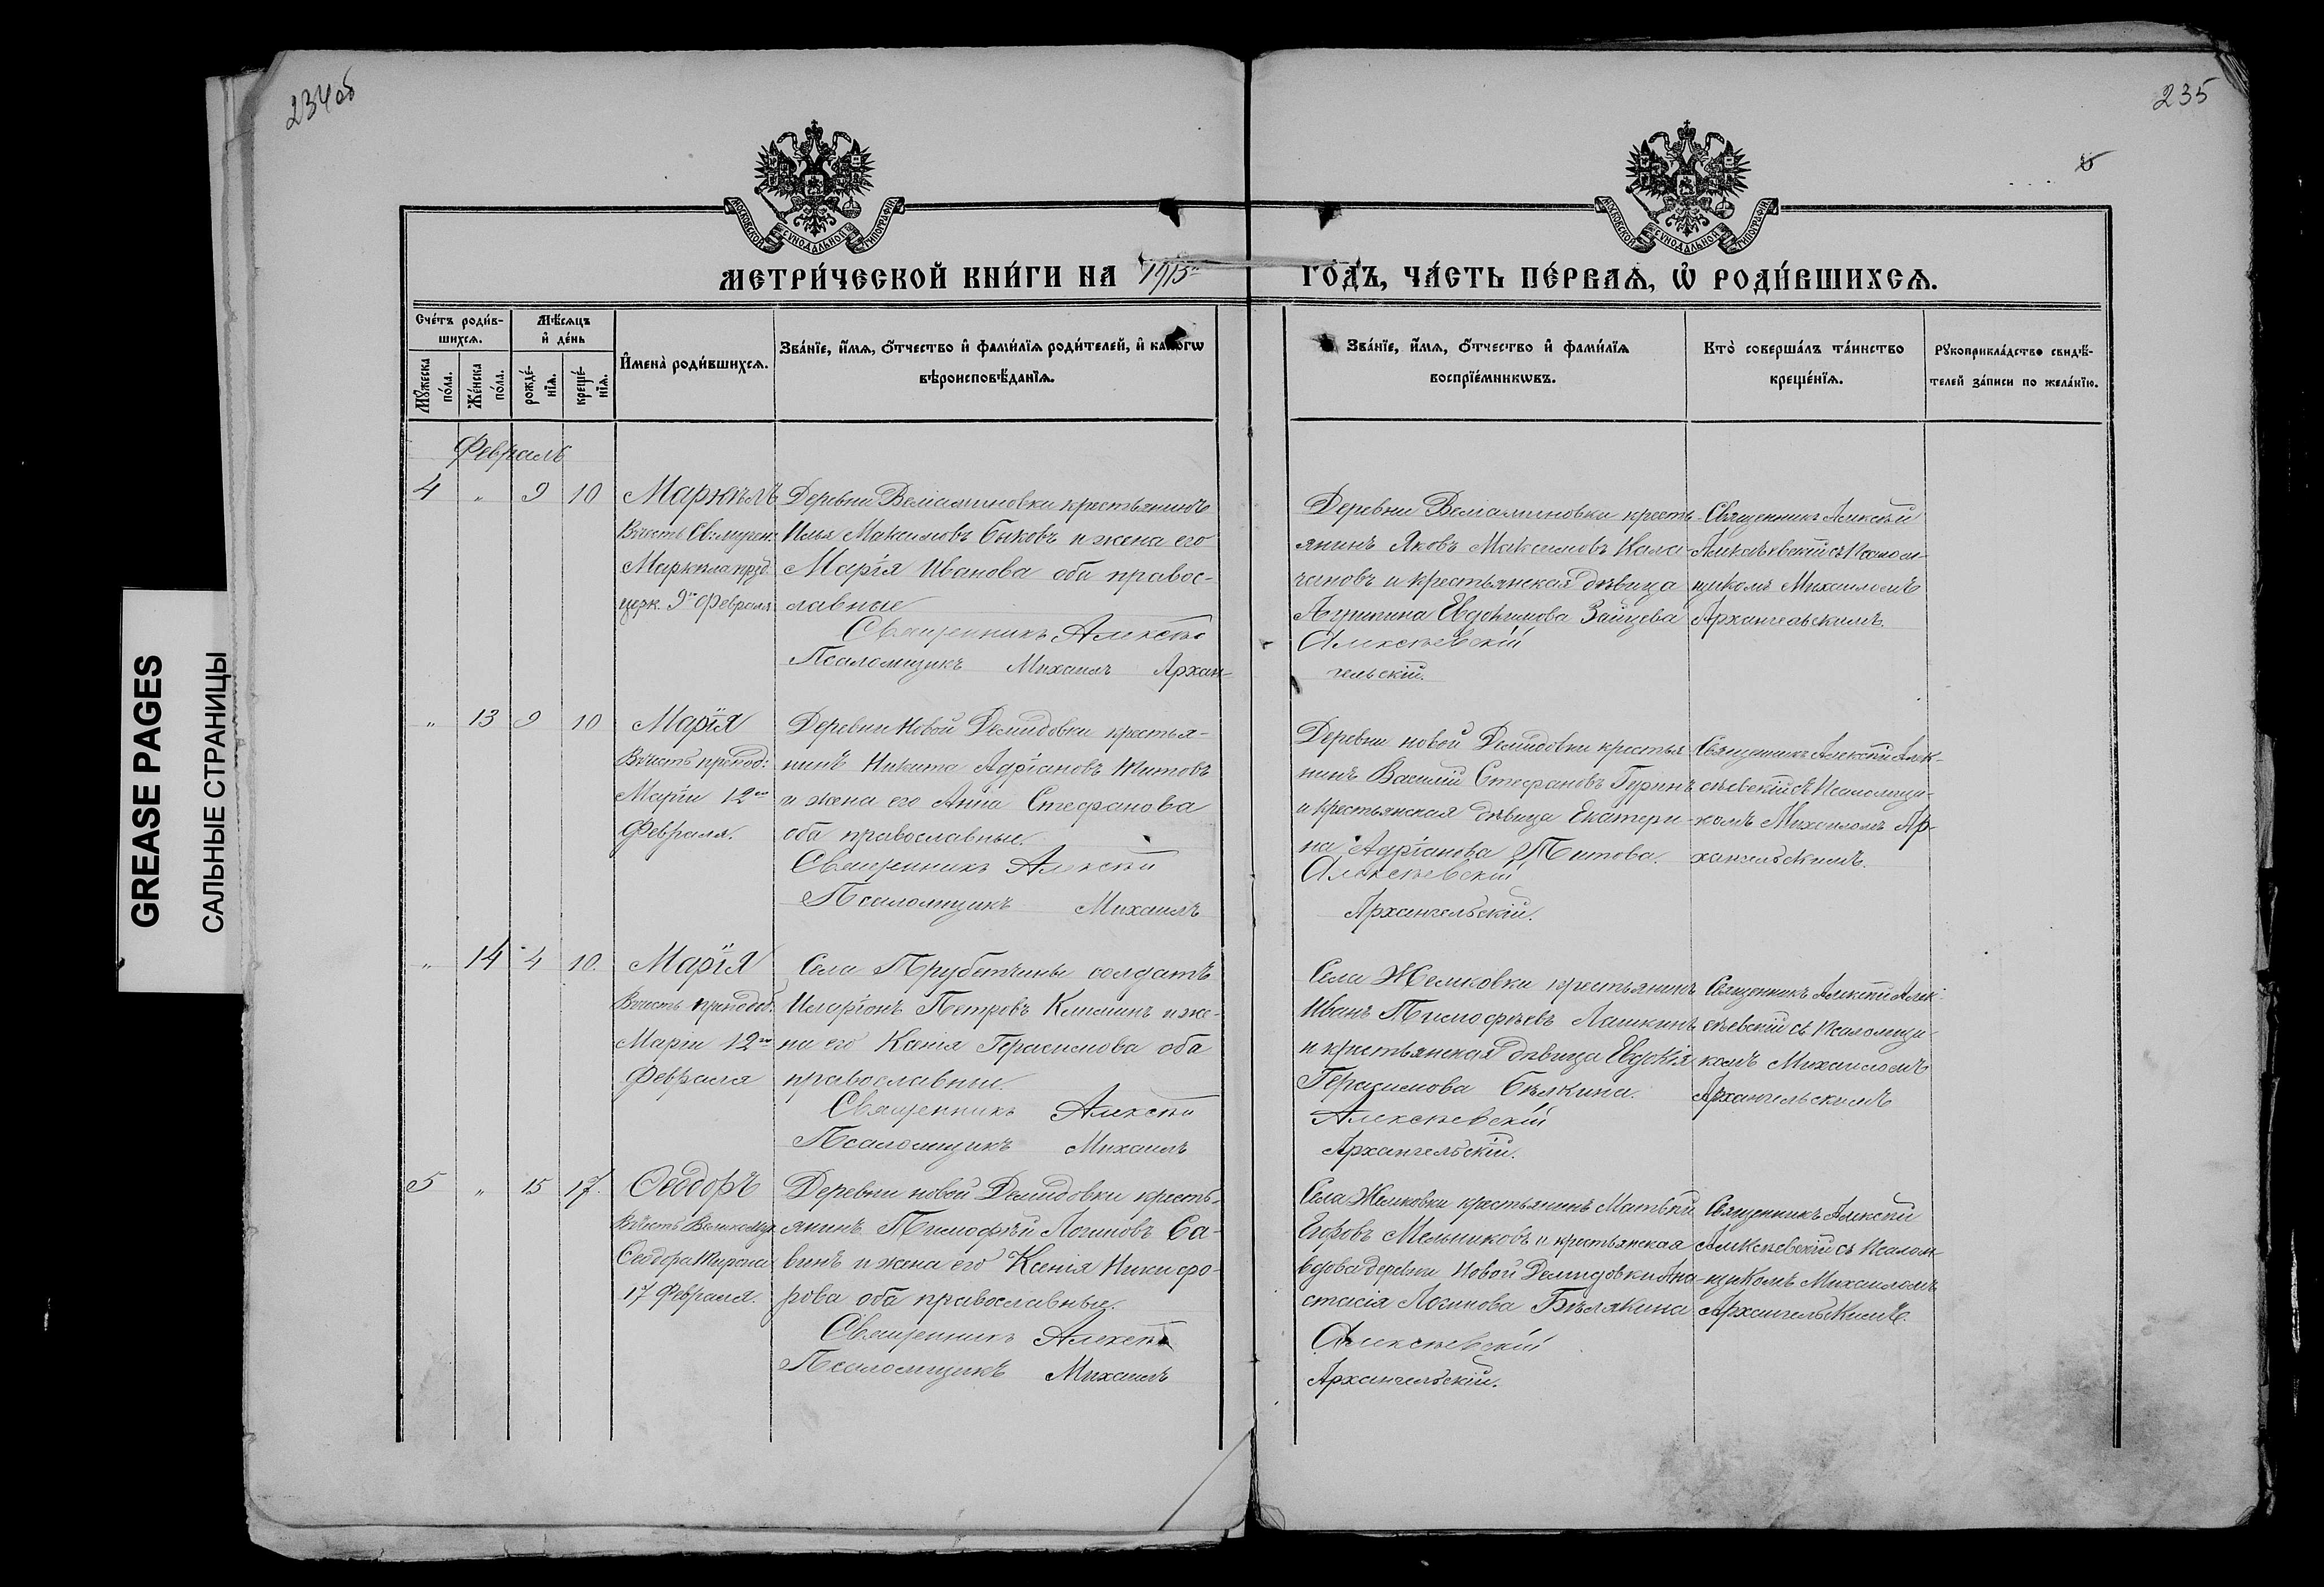 234об
235
МОСКОВСКОЙ СѴНОДАЛЬНОЙ ТИПОГРАФІИ
МОСКОВСКОЙ СѴНОДАЛЬНОЙ ТИПОГРАФІИ
МЕТРИ́ЧЕСКОЙ КНИ́ГИ НА 1915 ГО́ДЪ, ЧА́СТЬ ПЕ́РВАѦ, Ѽ РОДИ́ВШИХСѦ.
Сче́тъ роди́в-
шихсѧ.
Мꙋ́жеска по́ла.
Же́нска по́ла.
Мѣ́сѧцъ
и҆ де́нь
рожде́-
нїѧ.
креще́-
нїѧ.
И҆мена̀ роди́вшихсѧ.
Зва́нїе, и҆́мѧ, ѻ҆́тчество и҆ фами́лїѧ роди́телей, и҆ како́гѡ
вѣроисповѣ́данїѧ.
Зва́нїе, и҆́мѧ, ѻ҆́тчество и҆ фами́лїѧ
воспрїе́мникѡвъ.
Кто̀ соверша́лъ та́инство
креще́нїѧ.
Рꙋкоприкла́дство свидѣ́-
телей за́писи по жела́нїю.
Февраль
4 „ 9 10
Маркеллъ
Въ честь Св: мучен:
Маркелла празд.
церк. 9го Февраля
Деревни Веліаминовки крестьянинъ
Илья Максимовъ Быковъ и жена его
Марія Иванова оба правос-
лавные
Священникъ Алексѣй
Псаломщикъ Михаилъ Архан-
Деревни Веліаминовки кресть
янинъ Яковъ Максимовъ Кала
чановъ и крестьянская дѣвица
Агрипина Евдокимова Зайцева
Алексѣевскій
гельскій.
Священникъ Алексѣй
Алексѣевскій съ Псалом-
щикомъ Михаиломъ
Архангельскимъ.
„ 13 9 10
Марія
Въ честь препод:
Маріи 12го
Февраля.
Деревни Новой Демидовки крестья-
нинъ Никита Адріановъ Титовъ
и жена его Анна Стефанова
оба православные.
Священникъ Алексѣй
Псаломщикъ Михаилъ
Деревни новой Демидовки крестья
нинъ Василій Стефановъ Гуринъ
и крестьянская дѣвица Екатери-
на Адріанова Титова.
Алексѣевскій
Архангельскій.
Священникъ Алексѣй Алек-
сѣевскій съ Псаломщи-
комъ Михаиломъ Ар-
хангельскимъ.
„ 14 4 10.
Марія
Въ честь преподоб.
Маріи 12го
Февраля
Села Трубетчины солдатъ
Иларіонъ Петровъ Климинъ и же-
на его Ксенія Герасимова оба
православные.
Священникъ Алексѣй
Псаломщикъ Михаилъ
Села Желковки крестьянинъ
Иванъ Тимофѣевъ Лашкинъ
и крестьянская дѣвица Евдокія
Герасимова Бѣлкина.
Алексѣевскій
Архангельскій.
Священникъ Алексѣй Алек-
сѣевскій съ Псаломщи-
комъ Михаиломъ
Архангельскимъ
5 „ 15 17.
Ѳеодоръ
Въ честь Великомуч.
Ѳеодора Тирона
17 Февраля.
Деревни новой Демидовки кресть-
янинъ Тимофѣй Логиновъ Са-
винъ и жена его Ксенія Никифо-
рова оба православные.
Священникъ Алексѣй
Псаломщикъ Михаилъ
Села Желковки крестьянинъ Матвѣй
Егоровъ Мельниковъ и крестьянская
вдова деревни Новой Демидовки Ана-
стасія Логинова Бѣлякина
Алексѣевскій
Архангельскій.
Священникъ Алексѣй
Алексѣевскій съ Псалом
щикомъ Михаиломъ
Архангельскимъ.
GREASE PAGES
САЛЬНЫЕ СТРАНИЦЫ